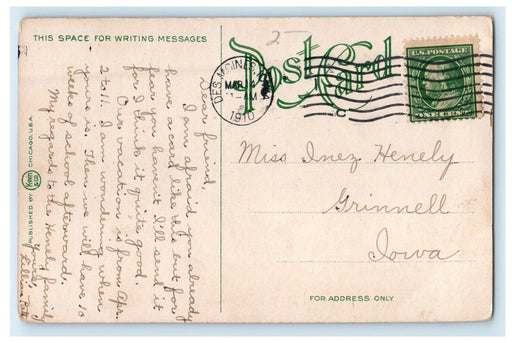 THIS SPACE FOR WRITING MESSAGES
Post Card
DES MOINES
MAR
1910
U.S. POSTAGE
ONE CENT
Dear friend,
I am afraid you already
have a card like this but for
fear you haven't I'll send it
for I think it quite good.
Our vacation is from Apr.
2 to 11. I am wondering when
yours is. Then we will have 10
weeks of school afterward.
My regards to the Henely family
Yours,
Lillian
Miss Inez Henely
Grinnell
Iowa
FOR ADDRESS ONLY
PUBLISHED BY
CHICAGO, U.S.A.